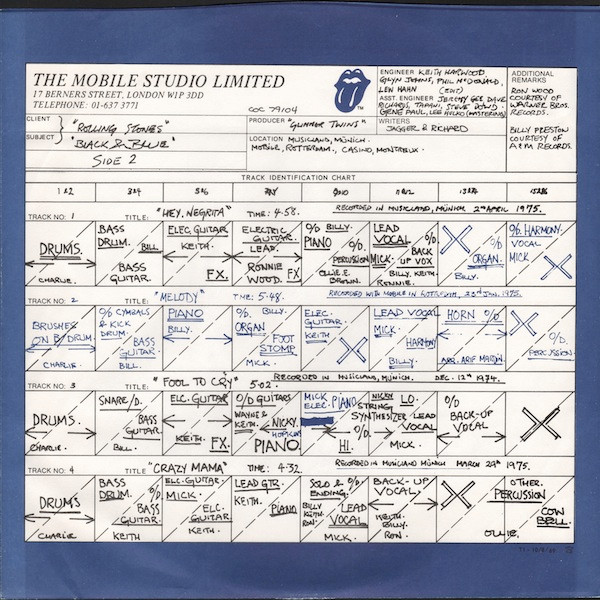 THE MOBILE STUDIO LIMITED
17 BERNERS STREET, LONDON W1P 3DD
TELEPHONE: 01-637 3771
COC 79104
CLIENT "ROLLING STONES"
SUBJECT "BLACK & BLUE"
SIDE 2
TM
PRODUCER "GLIMMER TWINS"
LOCATION MUSICLAND, MUNICH.
MOBILE, ROTTERDAM, CASINO, MONTREUX.
ENGINEER KEITH HARWOOD,
GLYN JOHNS, PHIL McDONALD,
LEW HAHN (EDIT)
ASST. ENGINEER JEREMY GEE DAVE
RICHARDS, TAPANI, STEVE DOWD.
GENE PAUL, LEE HULKO (MASTERING)
WRITERS
JAGGER & RICHARD
ADDITIONAL
REMARKS
RON WOOD
COURTESY OF
WARNER BROS.
RECORDS.
BILLY PRESTON
COURTESY OF
A&M RECORDS.
TRACK IDENTIFICATION CHART
1&2 3&4 5&6 7&8 9&10 11&12 13&14 15&16
TRACK NO: 1 TITLE: "HEY, NEGRITA" TIME: 4.58. RECORDED IN MUSICLAND, MUNICH 2nd APRIL 1975.
DRUMS.
CHARLIE.
BASS
DRUM.
BILL
BASS
GUITAR.
ELEC. GUITAR
KEITH.
FX.
ELECTRIC
GUITAR.
LEAD.
RONNIE
WOOD.
FX
O/D BILLY.
PIANO
O/D
PERCUSSION
OLLIE E.
BROWN.
LEAD
VOCAL
MICK.
O/D.
BACK
UP VOX
BILLY. KEITH.
RONNIE.
O/D
ORGAN.
BILLY.
O/D. HARMONY.
VOCAL
MICK
TRACK NO: 2 TITLE: "MELODY" TIME: 5.48. RECORDED WITH MOBILE IN ROTTERDAM, 23rd JAN. 1975.
BRUSHES
ON B/DRUM.
CHARLIE.
O/D CYMBALS
& KICK
DRUM.
BASS
GUITAR.
BILL.
PIANO
BILLY.
O/D. BILLY.
ORGAN
FOOT
STOMP
MICK.
ELEC.
GUITAR.
KEITH
LEAD VOCAL
MICK.
HARMONY
BILLY.
HORN O/D
ARR. ARIF MARDIN.
O/D.
PERCUSSION.
TRACK NO: 3 TITLE: "FOOL TO CRY" 5.02. RECORDED IN MUSICLAND, MUNICH. DEC. 12th 1974.
DRUMS.
CHARLIE.
SNARE/D.
BASS
GUITAR.
BILL.
ELC. GUITAR
KEITH.
FX.
O/D GUITARS
WAYNE &
KEITH.
NICKY.
HOPKINS
PIANO
MICK
ELEC. PIANO.
O/D.
HI.
NICKY LO.
STRING
SYNTHESIZER
LEAD
VOCAL
MICK.
O/D.
BACK-UP
VOCAL
TRACK NO: 4 TITLE "CRAZY MAMA" TIME: 4.32. RECORDED IN MUSICLAND MUNICH MARCH 29th 1975.
DRUMS
CHARLIE
BASS
DRUM.
O/D.
BASS
GUITAR.
KEITH
ELC. GUITAR
MICK.
ELC.
GUITAR.
KEITH.
LEAD GTR.
KEITH.
PIANO
SOLO & O/D
ENDING.
BILLY
KEITH.
RON.
LEAD
VOCAL
MICK.
BACK-UP
VOCAL.
KEITH.
BILLY.
RON.
OTHER.
PERCUSSION
COW
BELL.
OLLIE.